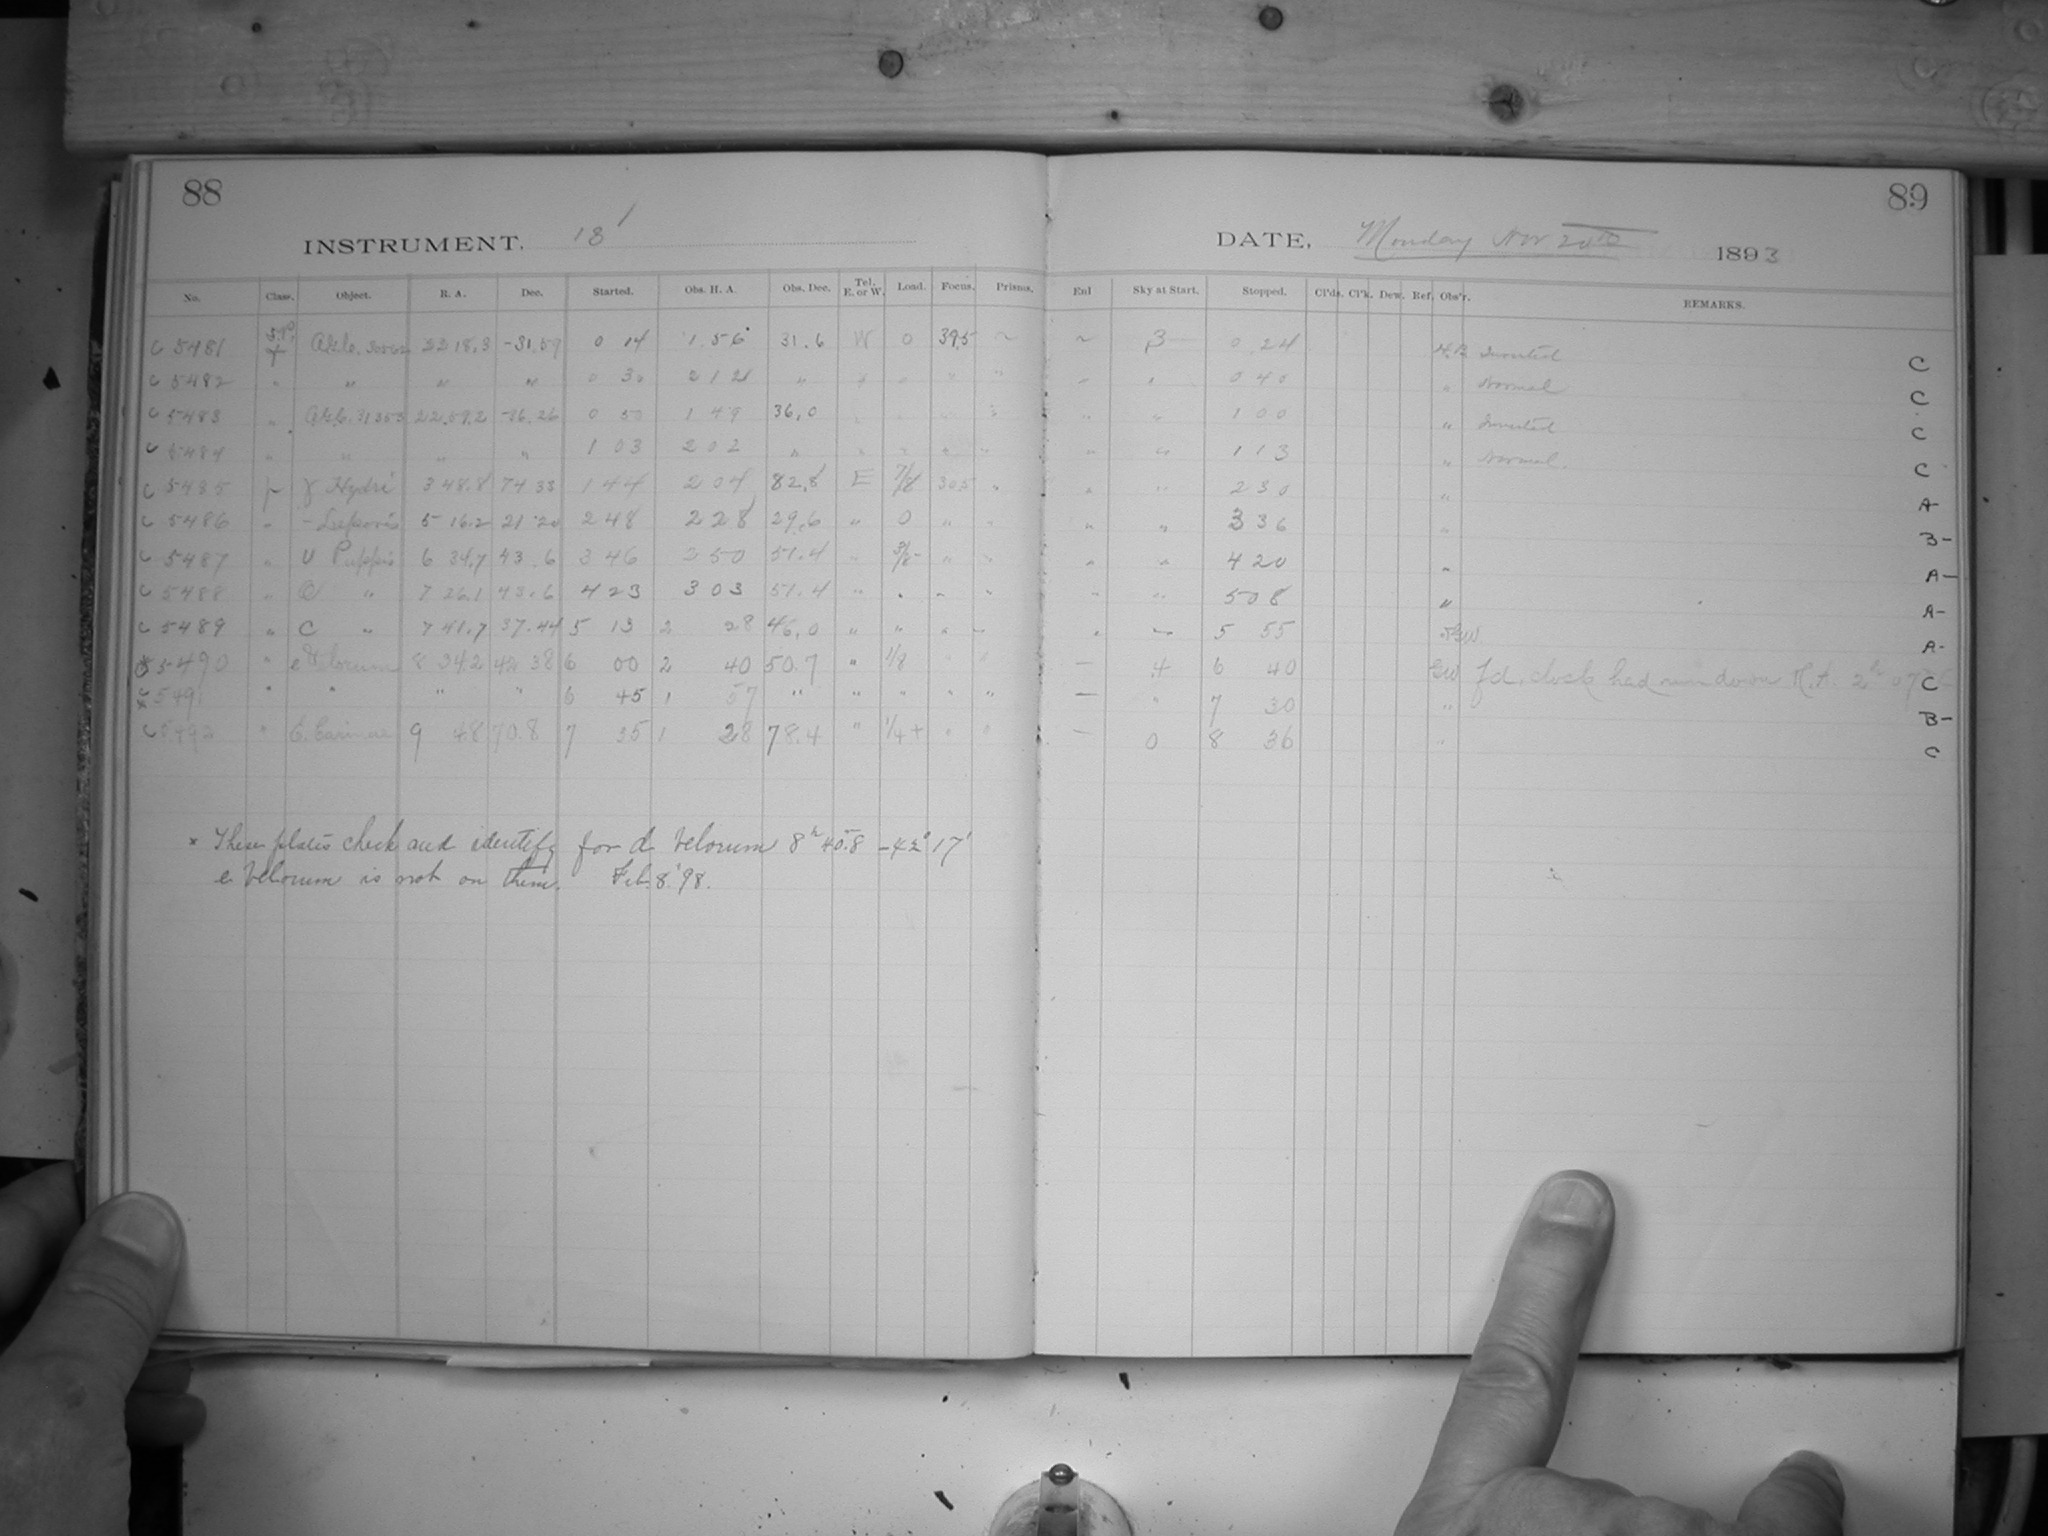 88
89
INSTRUMENT, 13'
DATE, Monday Nov 20th 1893
No. Class. Object. R. A. Dec. Started. Obs. H. A. Obs. Dec. Tel. E. or W. Load. Focus. Prisms. Enl Sky at Start. Stopped. Cl'ds. Cl'k. Dew. Ref. Obs'r. REMARKS.
C 5481 2218.3 -31.59 0 14 1 56 31.6 W 0 39.5 ~ ~ 3 0 24 Inverted C
C 5482 " " " " 0 30 2 12 " " " " " " 0 40 " Normal C
C 5483 " 22.58.2 -36.26 0 50 1 49 36.0 " " 1 00 " Inverted C
C 5484 " " " " 1 03 2 02 " " " " " " " " 1 13 " Normal. C
C 5485 γ Hydri 3 48.8 74 33 1 44 2 04 82.8 E 7/8 30.5 " " " 2 30 " A
C 5486 " - Leporis 5 16.2 21 20 2 48 2 28 29.6 " 0 " " " " 3 36 " B-
C 5487 " υ Puppis 6 34.7 43.6 3 46 2 50 51.4 " " " " " 4 20 " A-
C 5488 " " 7 26.1 43.6 4 23 3 03 51.4 " " " " " " 5 08 " A-
C 5489 " C " 7 41.7 37.44 5 13 2 28 46.0 " " " " " " 5 55 A-
5490 " e Velorum 8 34.2 42 38 6 00 2 40 50.7 " 1/8 " " - 4 6 40 clock had run down R.A. 2h 07 C
5491 " " " " 6 45 1 57 " " " " " - " 7 30 " B-
C 5492 " Carinae 9 48 70.8 7 35 1 28 78.4 " 1/4+ " " - 0 8 36 " C
× These plates check and identify for d Velorum 8h 40.8 -42° 17'
e Velorum is not on them. Feb. 8. '98.